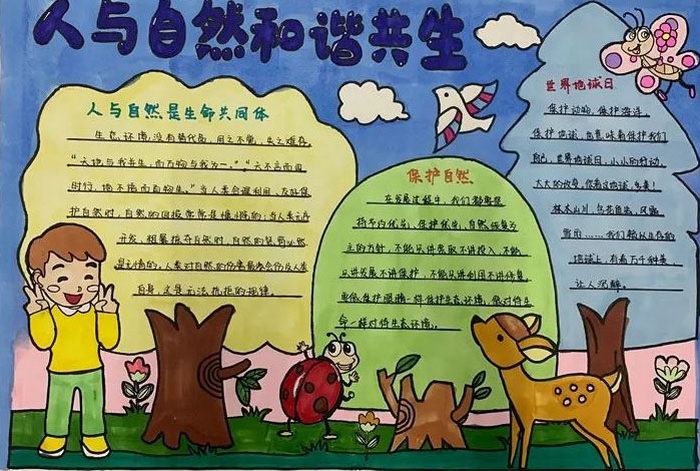 人与自然和谐共生
人与自然是生命共同体
生态环境没有替代品,用之不觉,失之难存。
“天地与我并生,而万物与我为一。”“天不言而四
时行,地不语而百物生。”当人类合理利用、友好保
护自然时,自然的回报常常是慷慨的;当人类无
序开发、粗暴掠夺自然时,自然的惩罚必然
是无情的。人类对自然的伤害最终会伤及人类
自身,这是无法抗拒的规律。
保护自然
在发展过程中,我们都要坚
持节约优先、保护优先、自然恢复为
主的方针,不能只讲索取不讲投入,不能
只讲发展不讲保护,不能只讲利用不讲修复,
要像保护眼睛一样保护生态环境,像对待生
命一样对待生态环境。
世界地球日
保护动物,保护海洋,
保护地球,也意味着保护我们
自己。世界地球日,小小的行动,
大大的改变,
林木山川,鸟花自生,
我们赖以生存的
地球上,有着万千种美,
让人沉醉。